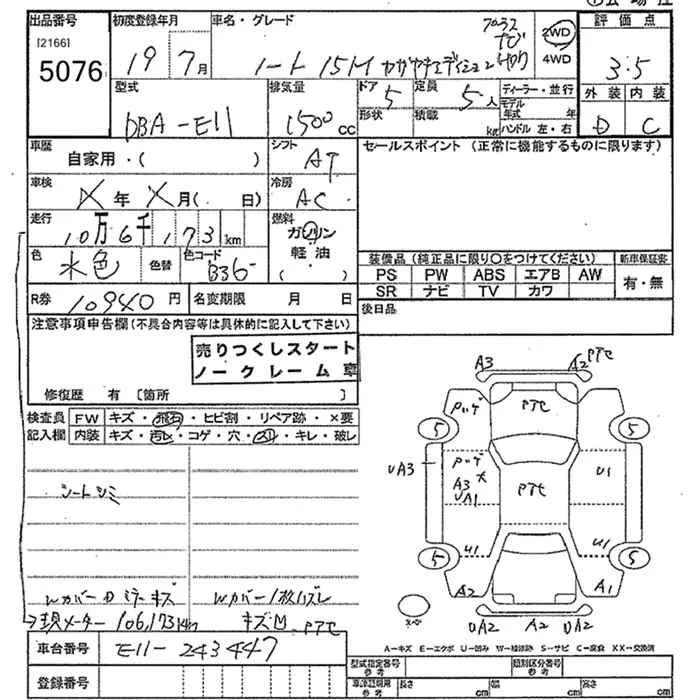 出品番号
初度登録年月
車名・グレード
評価点
[2166]
5076
19 7月
ノート 15M
2WD
4WD
3.5
型式
排気量
ドア
定員
ディーラー・並行
外装 内装
DBA-E11
1500cc
5
5人
モデル年式 年
D C
形状
積載
kg
ハンドル 左・右
車歴
自家用・( )
シフト
AT
セールスポイント (正常に機能するものに限ります)
車検
年 月( 日)
冷房
AC
走行
10万6千173km
燃料
ガソリン
軽油
色
水色
色替
色コード
B36
装備品(純正品に限り〇をつけてください)
新車保証書
PS PW ABS エアB AW
SR ナビ TV カワ
有・無
R券 10940円
名変期限 月 日
後日品
注意事項申告欄(不具合内容等は具体的に記入して下さい)
売りつくしスタート
ノークレーム車
修復歴 有 [箇所 ]
検査員
記入欄
FW キズ・飛石・ヒビ割・リペア跡・×要
内装 キズ・汚レ・コゲ・穴・スリ・キレ・破レ
シートシミ
Wカバー
ミラーキズ
Wカバー1枚ハズレ
→現メーター 106,173km
キズ凹 PTセ
車台番号 E11-243447
登録番号
A3 A2 PTセ
PTセ
5 5
UA3
A3
UA1
PTセ
U1
U1 U1
5 5
A2 A1
UA2 A2 UA2
A-キズ E-エクボ U-凹み W-補修跡 S-サビ C-腐食 XX-交換済
型式指定番号
参考
類別区分番号
参考
長さ cm
幅 cm
高さ cm